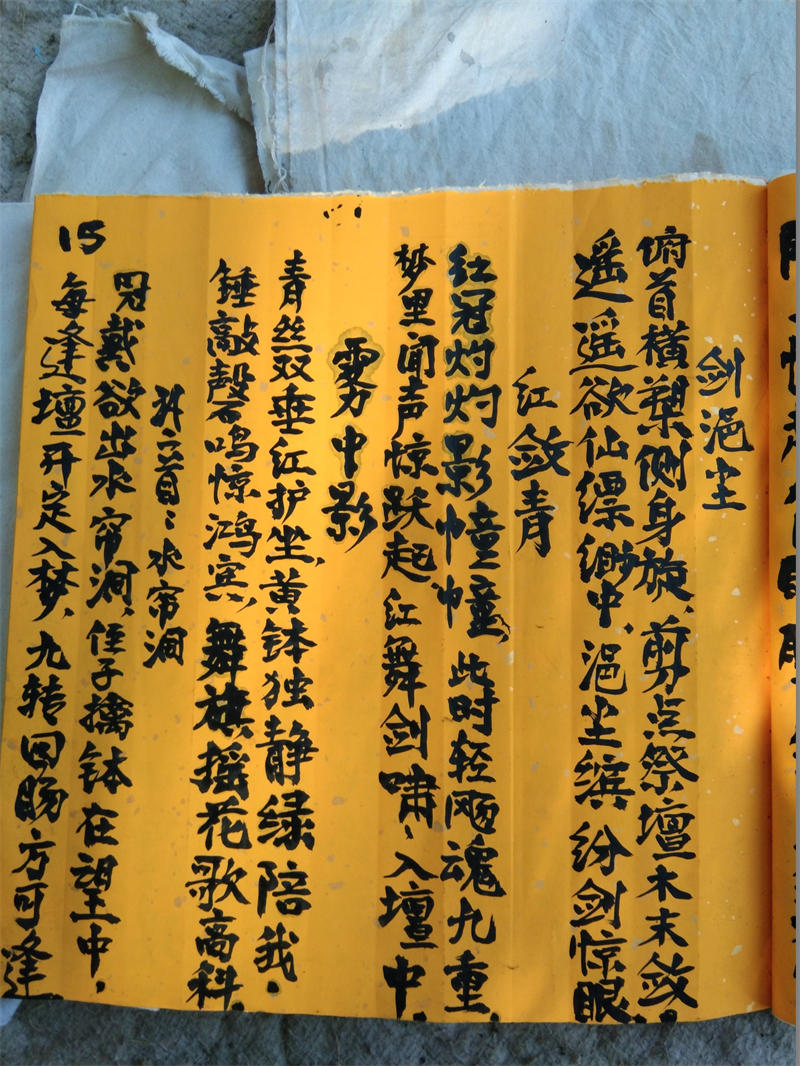 剑浥尘
俯首横槊侧身旋,剪点祭坛木末敛,
遥遥欲仙缥缈中,浥尘缤纷剑惊眼,
红敛青
红冠灼灼影幢幢,此时轻飏魂九重,
梦里闻声惊跃起,红舞剑啸、入坛中,
雾中影
青丝双垂红护坐,黄钵独静绿陪我.
锤敲磬鸣惊鸿宾,舞旗摇花歌高科.
升六首:水帘洞
冠戴欲出水帘洞,侄子擒钵在望中,
每逢坛开定入梦,九转回肠方可逢
15